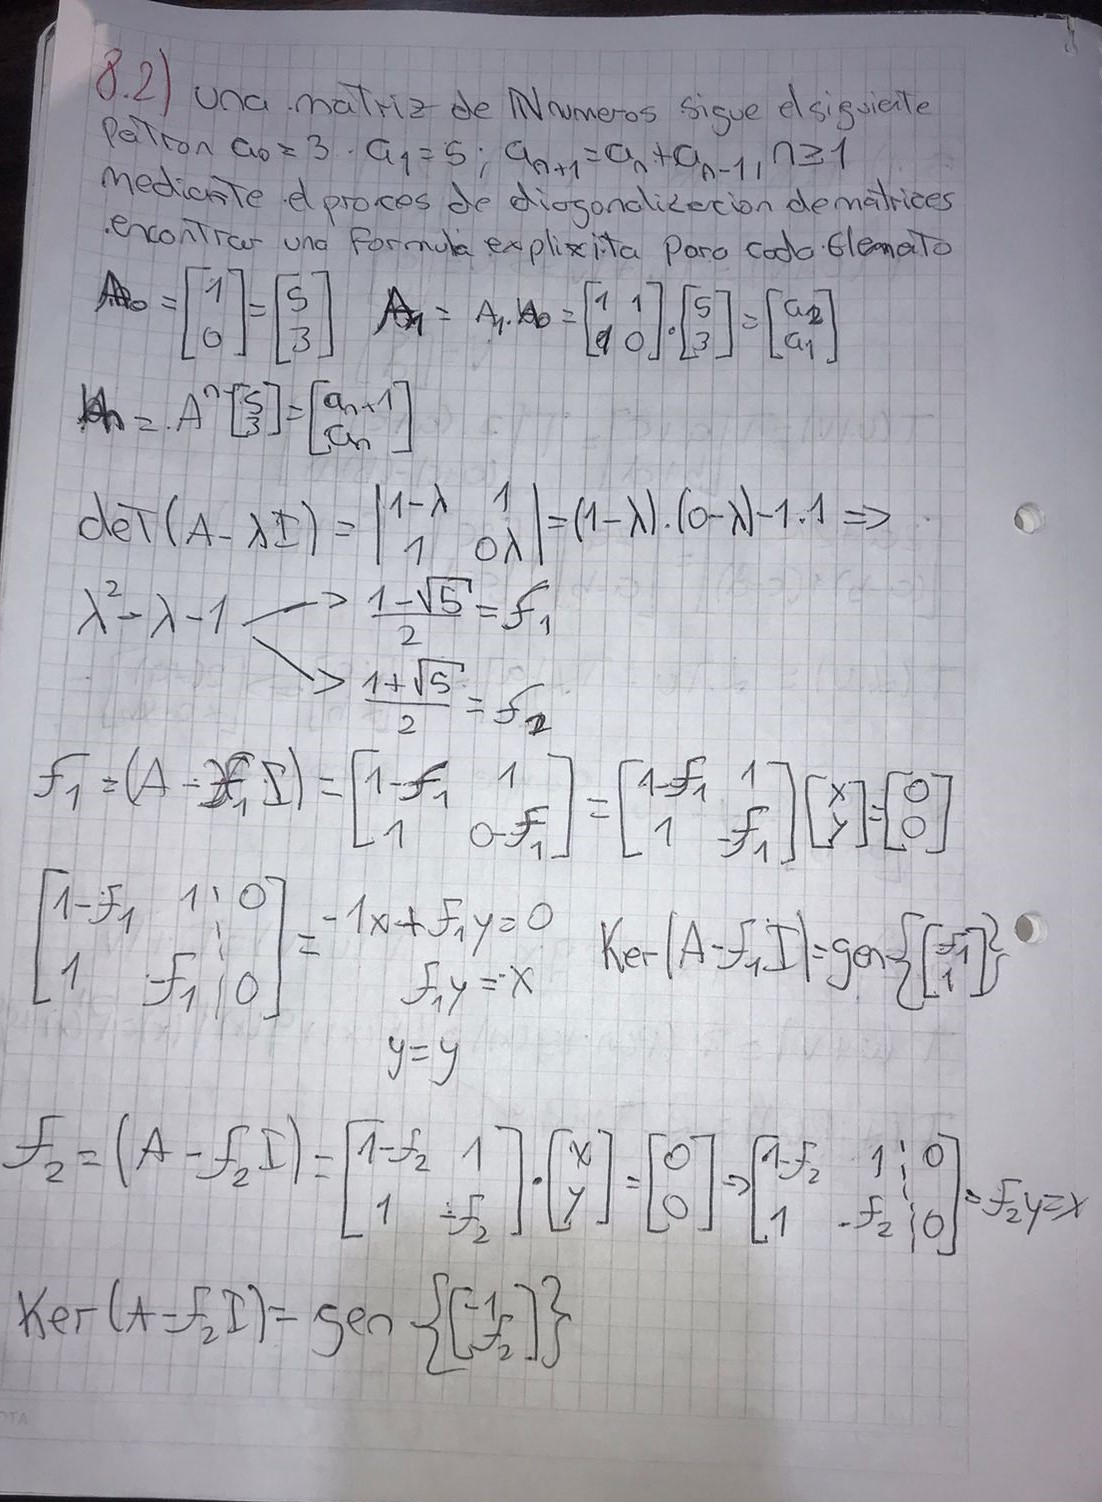 8.2) una matriz de INnumeros sigue el siguiente
Patron a₀ = 3 . a₁ = 5 ; aₙ₊₁ = aₙ + aₙ₋₁, n ≥ 1
mediante el proces de diagonalizacion de matrices
encontrar una formula explixita para cada Elemento
= [1 0] = [5 3] A₁ = A₁ . A₀ = [1 1 1 0] . [5 3] = [a₂ a₁]
= A [5 3] = [aₙ₊₁ aₙ]
deT (A - λI) = |1-λ 1 1 0λ| = (1-λ).(0-λ)-1.1 =>
λ² - λ - 1 → (1-√5)/2 = f₁
→ (1+√5)/2 = f₂
f₁ = (A - f₁ I) = [1-f₁ 1 1 0-f₁] = [1-f₁ 1 1 -f₁] [x y] = [0 0]
[1-f₁ 1 ¦ 0 1 -f₁ ¦ 0] = -1x + f₁y = 0 Ker(A-f₁I) = gen{[-f₁ 1]}
f₁y = x
y = y
f₂ = (A - f₂I) = [1-f₂ 1 1 -f₂] . [x y] = [0 0] => [1-f₂ 1 ¦ 0 1 -f₂ ¦ 0] = f₂y = x
Ker (A-f₂I) = gen {[-1 f₂]}